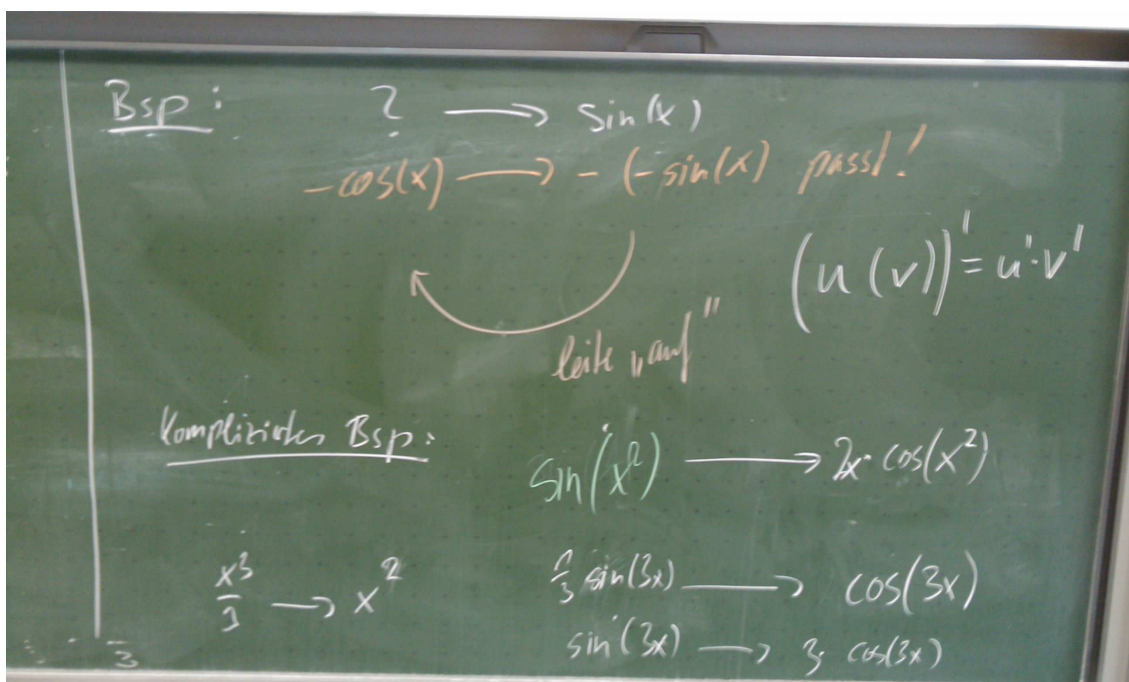 Bsp: ? → sin(x)
-cos(x) → - (-sin(x) passt!
(u(v))' = u'·v'
leite "auf"
Kompliziertes Bsp:
sin(x²) → 2x· cos(x²)
x³/3 → x²
1/3 sin(3x) → cos(3x)
sin(3x) → 3· cos(3x)
3